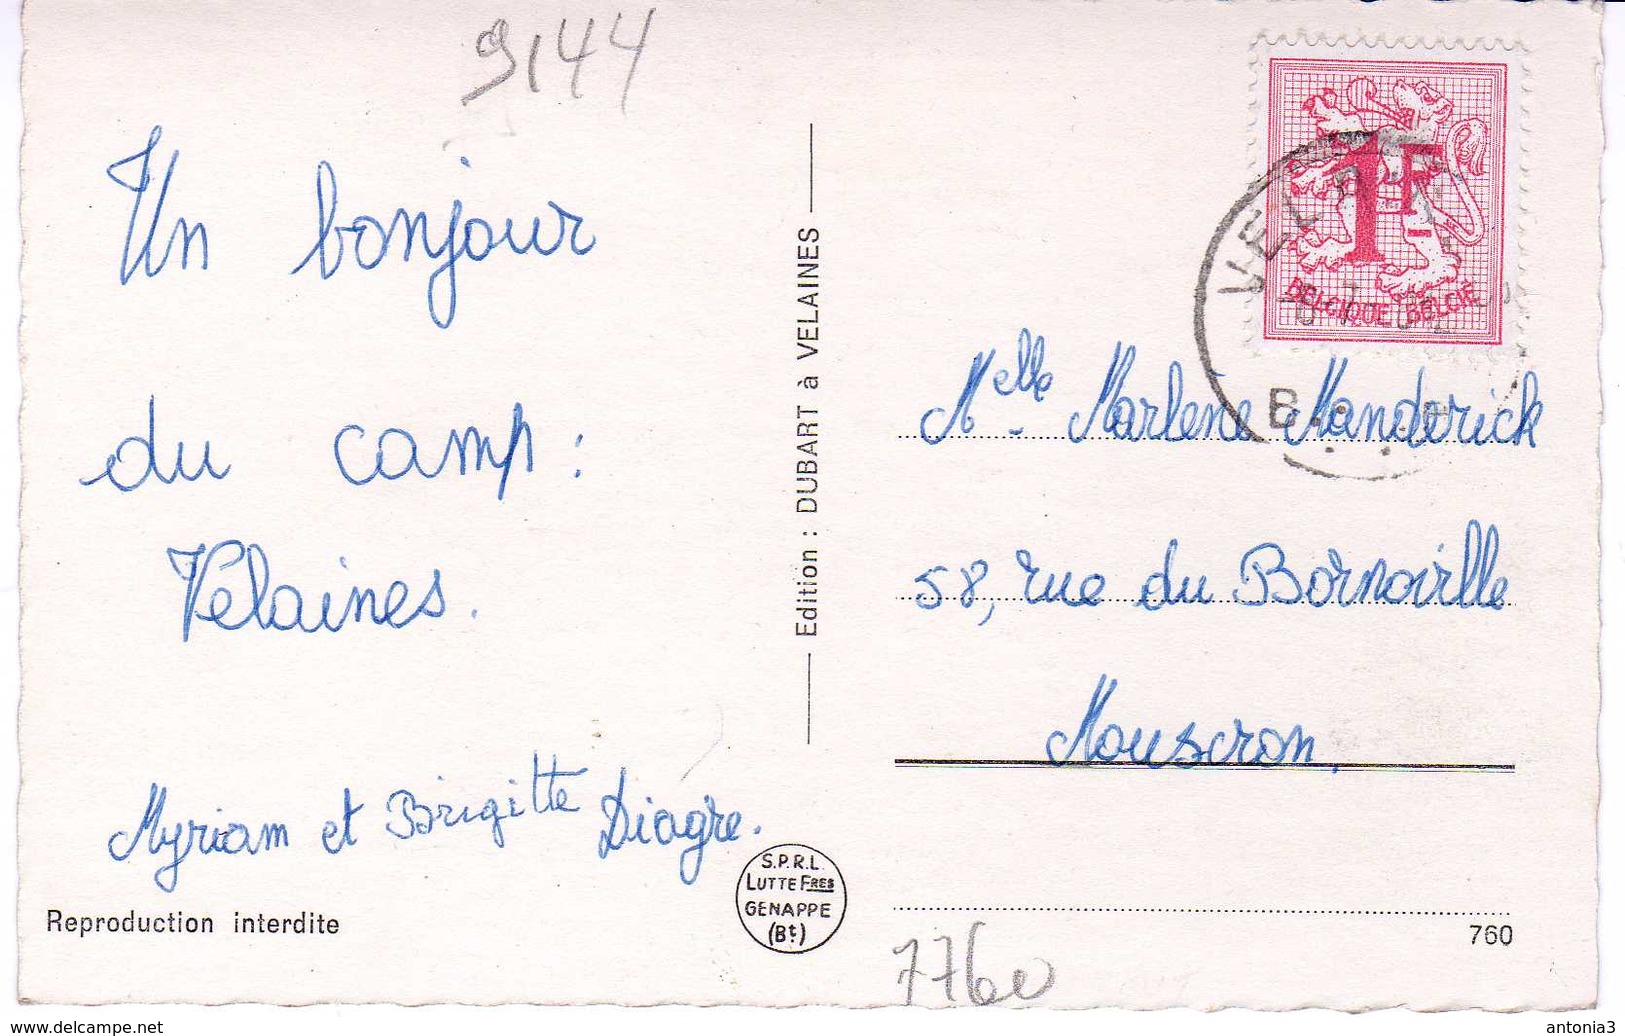 9144
Un bonjour
du camp :
Vélaines.
Myriam et Brigitte Diagre.
Reproduction interdite
Edition : DUBART à VELAINES
S.P.R.L.
LUTTE FRES
GENAPPE
(Bt.)
1F
BELGIQUE BELGIË
VELA
B
Melle Marlène Manderick
58, rue du Bornoville
Mouscron.
760
7760
www.delcampe.net
antonia3